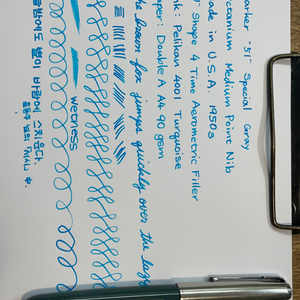 arker '51' Special Gray
ctanium Medium Point Nib
ade in U.S.A. 1950s
Shape 4 Time Aerometric Filler
nk: Pelikan 4001 Turquoise
aper: Double A A4 90 gsm
he brown fox jumps quickly over the lazy
wetness
늘밤에도 별이 바람에 스치운다.
윤동주 님의 「서시」 中.